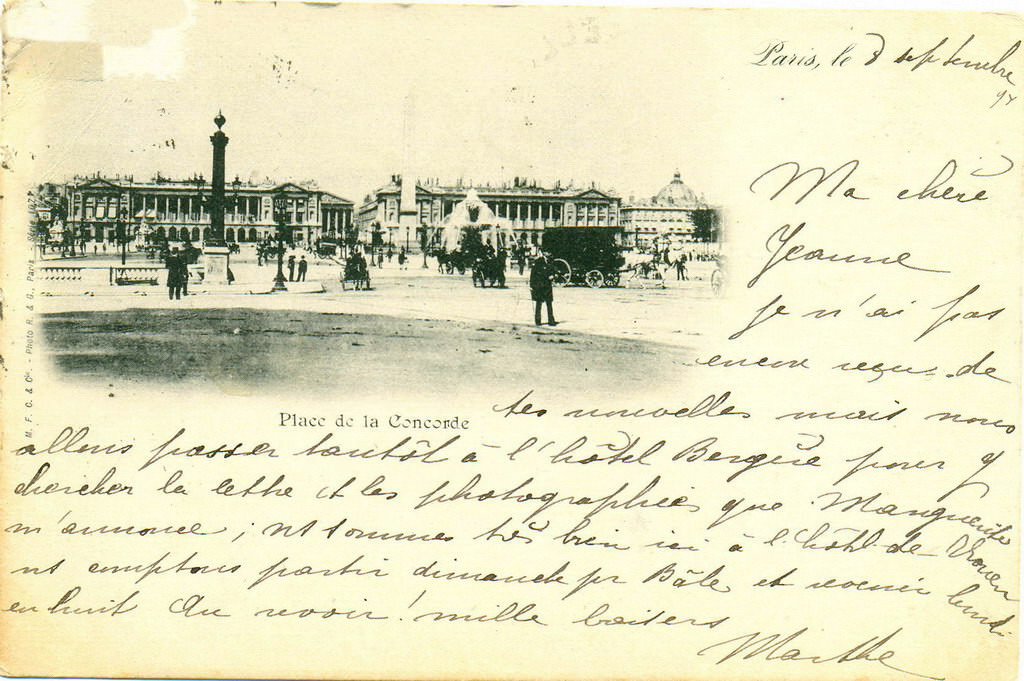 Paris, le 8 septembre
97
Ma chère
Jeanne
je n'ai pas
encore reçu de
tes nouvelles mais nous
Place de la Concorde
allons passer tantôt à l'hôtel Bergère pour y
chercher la lettre et les photographies que Marguerite
m'annonce ; ns sommes très bien ici à l'hôtel de Rouen
ns comptons partir dimanche pr Bâle et revenir lundi
en huit Au revoir ! mille baisers
Marthe
M. F. C. & Cie. - Photo R. & G., Paris